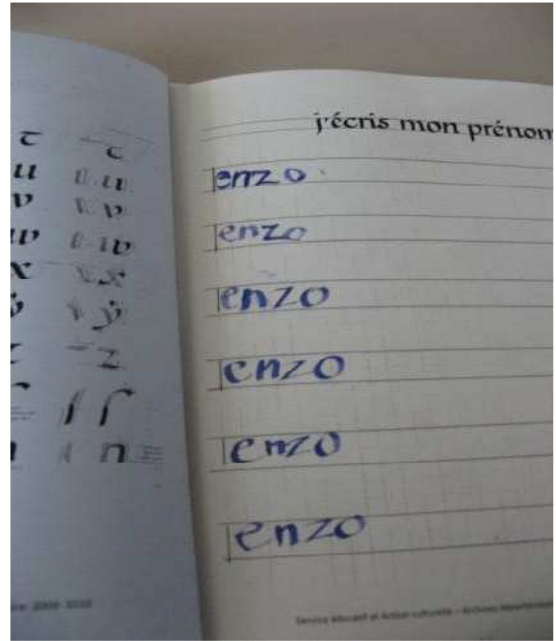 τ c
u u u
v v v
w w w
x x x
ÿ ÿ
z z
n n
2009-2010
j'écris mon prénom
enzo
enzo
enzo
enzo
enzo
enzo
Service éducatif et Action culturelle – Archives départementales